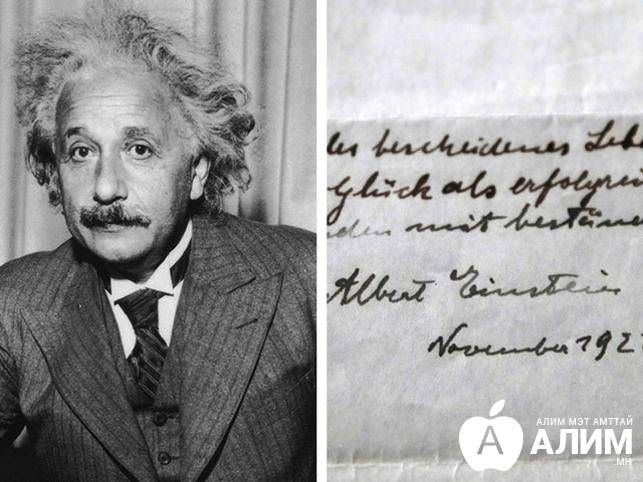 lles bescheidenes Lebe
Glück als erfolgrei
den mit bestän
Albert Einstein
November 192
А
АЛИМ МЭТ АМТТАЙ
АЛИМ
.МН